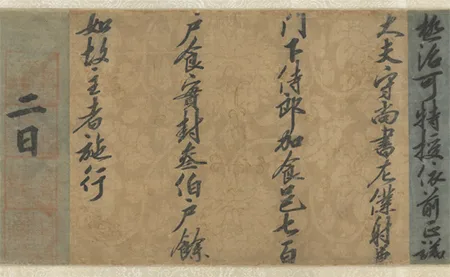 極治可特授依前正議
大夫守尚書左僕射兼
門下侍郎加食邑七百
戶食實封叁伯戶餘
如故主者施行
二日